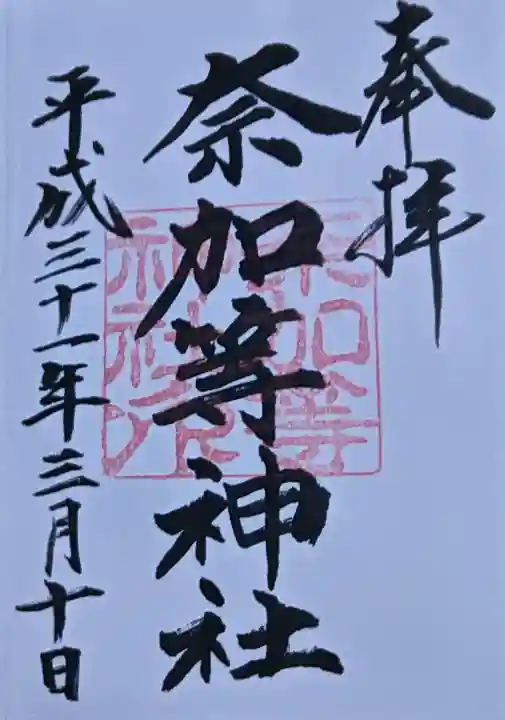 奉拝
奈加等神社
奈加等
神社之印
平成三十一年三月十日